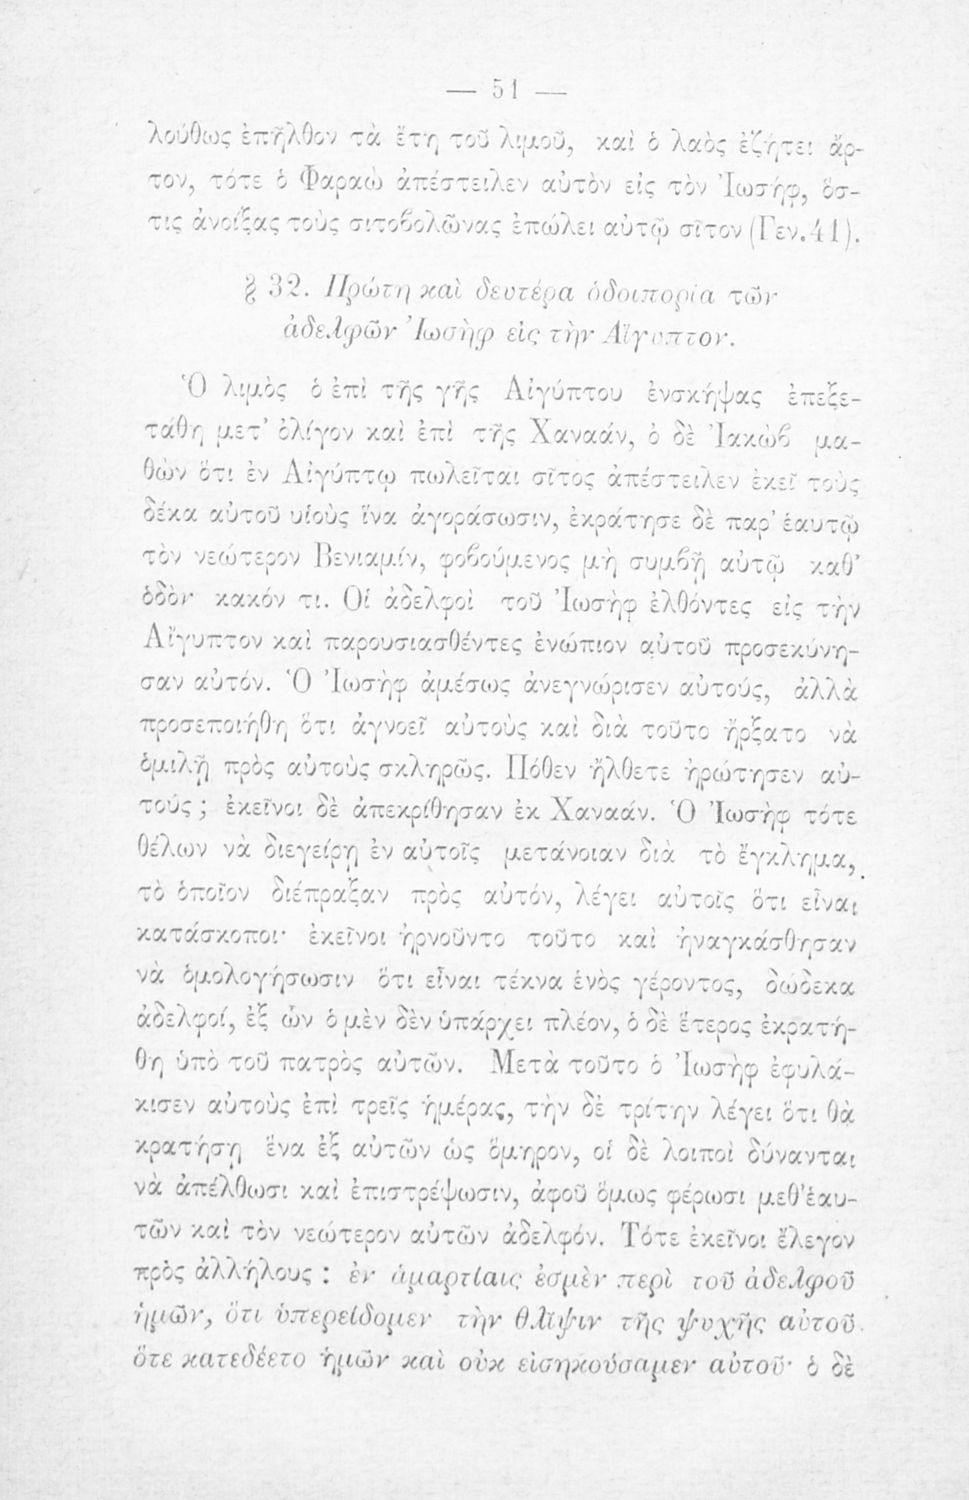 — 51 —
λούθως ἐπῆλθον τὰ ἔτη τοῦ λιμοῦ, καὶ ὁ λαὸς ἐζήτει ἄρ-
τον, τότε ὁ Φαραὼ ἀπέστειλεν αὐτὸν εἰς τὸν Ἰωσήφ, ὅσ-
τις ἀνοίξας τοὺς σιτοβολῶνας ἐπώλει αὐτῷ σῖτον (Γεν. 41).
§ 32. Πρώτη καὶ δευτέρα ὁδοιπορία τῶν
ἀδελφῶν Ἰωσὴφ εἰς τὴν Αἴγυπτον.
Ὁ λιμὸς ὁ ἐπὶ τῆς γῆς Αἰγύπτου ἐνσκήψας ἐπεξε-
τάθη μετ' ὀλίγον καὶ ἐπὶ τῆς Χαναάν, ὁ δὲ Ἰακὼβ μα-
θὼν ὅτι ἐν Αἰγύπτῳ πωλεῖται σῖτος ἀπέστειλεν ἐκεῖ τοὺς
δέκα αὐτοῦ υἱοὺς ἵνα ἀγοράσωσιν, ἐκράτησε δὲ παρ' ἑαυτῷ
τὸν νεώτερον Βενιαμίν, φοβούμενος μὴ συμβῇ αὐτῷ καθ'
ὁδὸν κακόν τι. Οἱ ἀδελφοὶ τοῦ Ἰωσὴφ ἐλθόντες εἰς τὴν
Αἴγυπτον καὶ παρουσιασθέντες ἐνώπιον αὐτοῦ προσεκύνη-
σαν αὐτόν. Ὁ Ἰωσὴφ ἀμέσως ἀνεγνώρισεν αὐτούς, ἀλλὰ
προσεποιήθη ὅτι ἀγνοεῖ αὐτοὺς καὶ διὰ τοῦτο ἤρξατο νὰ
ὁμιλῇ πρὸς αὐτοὺς σκληρῶς. Πόθεν ἤλθετε ἠρώτησεν αὐ-
τούς; ἐκεῖνοι δὲ ἀπεκρίθησαν ἐκ Χαναάν. Ὁ Ἰωσὴφ τότε
θέλων νὰ διεγείρῃ ἐν αὐτοῖς μετάνοιαν διὰ τὸ ἔγκλημα,
τὸ ὁποῖον διέπραξαν πρὸς αὐτόν, λέγει αὐτοῖς ὅτι εἶναι
κατάσκοποι· ἐκεῖνοι ἠρνοῦντο τοῦτο καὶ ἠναγκάσθησαν
νὰ ὁμολογήσωσιν ὅτι εἶναι τέκνα ἑνὸς γέροντος, δώδεκα
ἀδελφοί, ἐξ ὧν ὁ μὲν δὲν ὑπάρχει πλέον, ὁ δὲ ἕτερος ἐκρατή-
θη ὑπὸ τοῦ πατρὸς αὐτῶν. Μετὰ τοῦτο ὁ Ἰωσὴφ ἐφυλά-
κισεν αὐτοὺς ἐπὶ τρεῖς ἡμέρας, τὴν δὲ τρίτην λέγει ὅτι θὰ
κρατήσῃ ἕνα ἐξ αὐτῶν ὡς ὅμηρον, οἱ δὲ λοιποὶ δύνανται
νὰ ἀπέλθωσι καὶ ἐπιστρέψωσιν, ἀφοῦ ὅμως φέρωσι μεθ' ἑαυ-
τῶν καὶ τὸν νεώτερον αὐτῶν ἀδελφόν. Τότε ἐκεῖνοι ἔλεγον
πρὸς ἀλλήλους : ἐν ἁμαρτίαις ἐσμὲν περὶ τοῦ ἀδελφοῦ
ἡμῶν, ὅτι ὑπερείδομεν τὴν θλῖψιν τῆς ψυχῆς αὐτοῦ
ὅτε κατεδέετο ἡμῶν καὶ οὐκ εἰσηκούσαμεν αὐτοῦ· ὁ δὲ